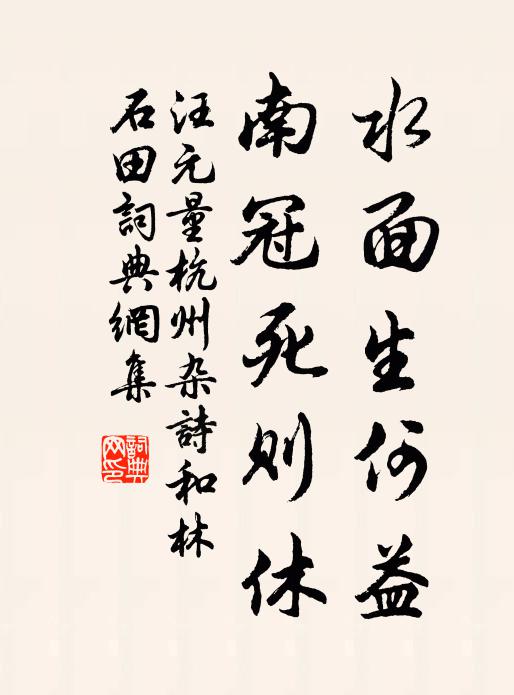 水面生何益
南冠死则休
汪元量杭州杂詩和林
石田詞典網集
詞典网印